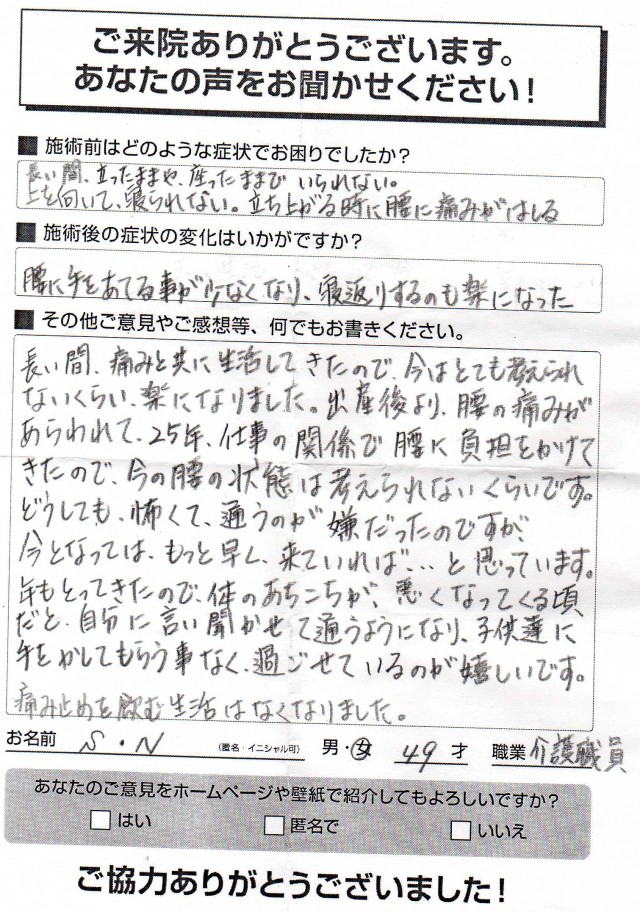 ご来院ありがとうございます。
あなたの声をお聞かせください!
■ 施術前はどのような症状でお困りでしたか?
長い間、立ったままや、座ったままでいられない。
上を向いて、寝られない。立ち上がる時に腰に痛みがはしる
■ 施術後の症状の変化はいかがですか?
腰に手をあてる事が少なくなり、寝返りするのも楽になった
■ その他ご意見やご感想等、何でもお書きください。
長い間、痛みと共に生活してきたので、今はとても考えられ
ないくらい、楽になりました。出産後より、腰の痛みが
あらわれて、25年、仕事の関係で腰に負担をかけて
きたので、今の腰の状態は考えられないくらいです。
どうしても、怖くて、通うのが嫌だったのですが、
今となっては、もっと早く、来ていれば…と思っています。
年もとってきたので、体のあちこちが、悪くなってくる頃
だと、自分に言い聞かせて通うようになり、子供達に
手をかしてもらう事なく、過ごせているのが嬉しいです。
痛み止めを飲む生活はなくなりました。
お名前 S・N (匿名・イニシャル可) 男・女 49 才 職業 介護職員
あなたのご意見をホームページや壁紙で紹介してもよろしいですか?
□ はい □ 匿名で □ いいえ
ご協力ありがとうございました!